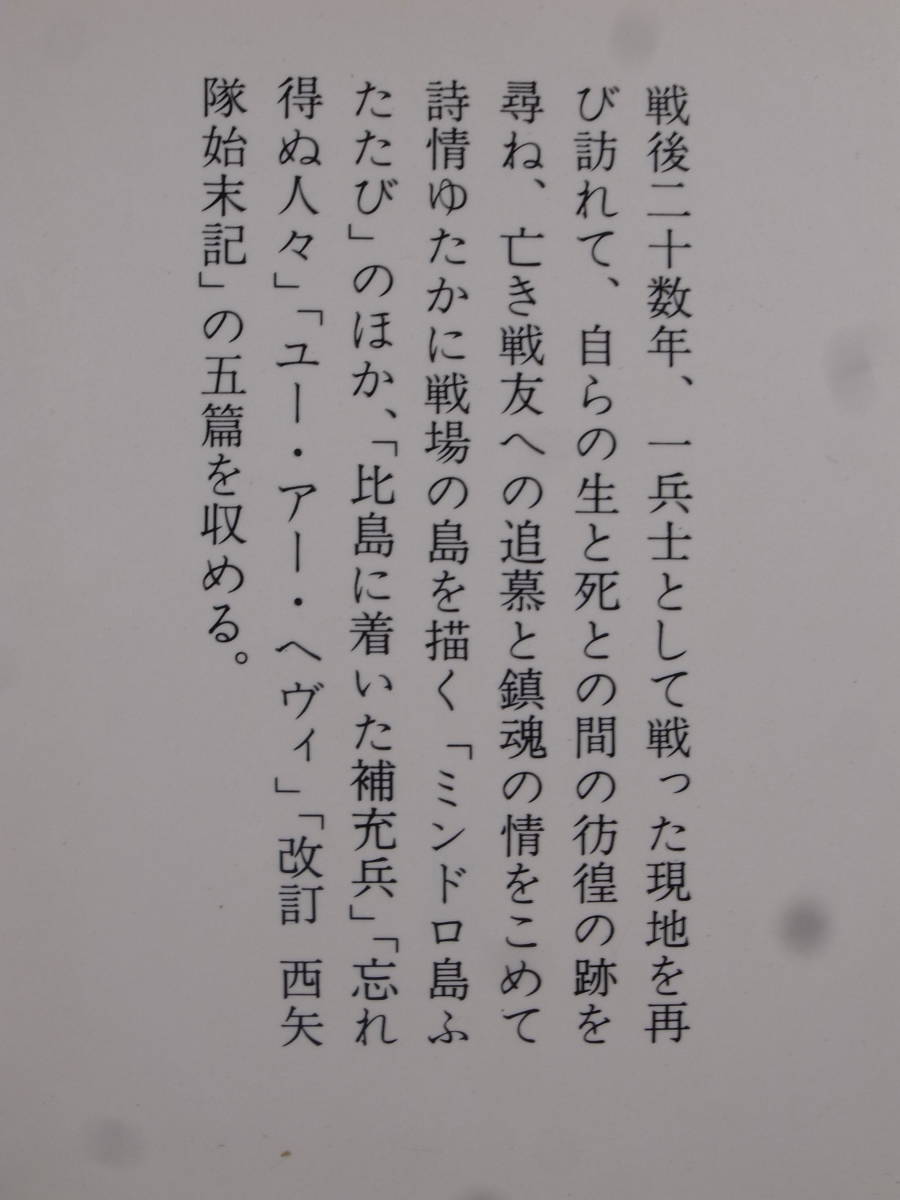 戦後二十数年、一兵士として戦った現地を再
び訪れて、自らの生と死との間の彷徨の跡を
尋ね、亡き戦友への追慕と鎮魂の情をこめて
詩情ゆたかに戦場の島を描く「ミンドロ島ふ
たたび」のほか、「比島に着いた補充兵」「忘れ
得ぬ人々」「ユー・アー・ヘヴィ」「改訂 西矢
隊始末記」の五篇を収める。